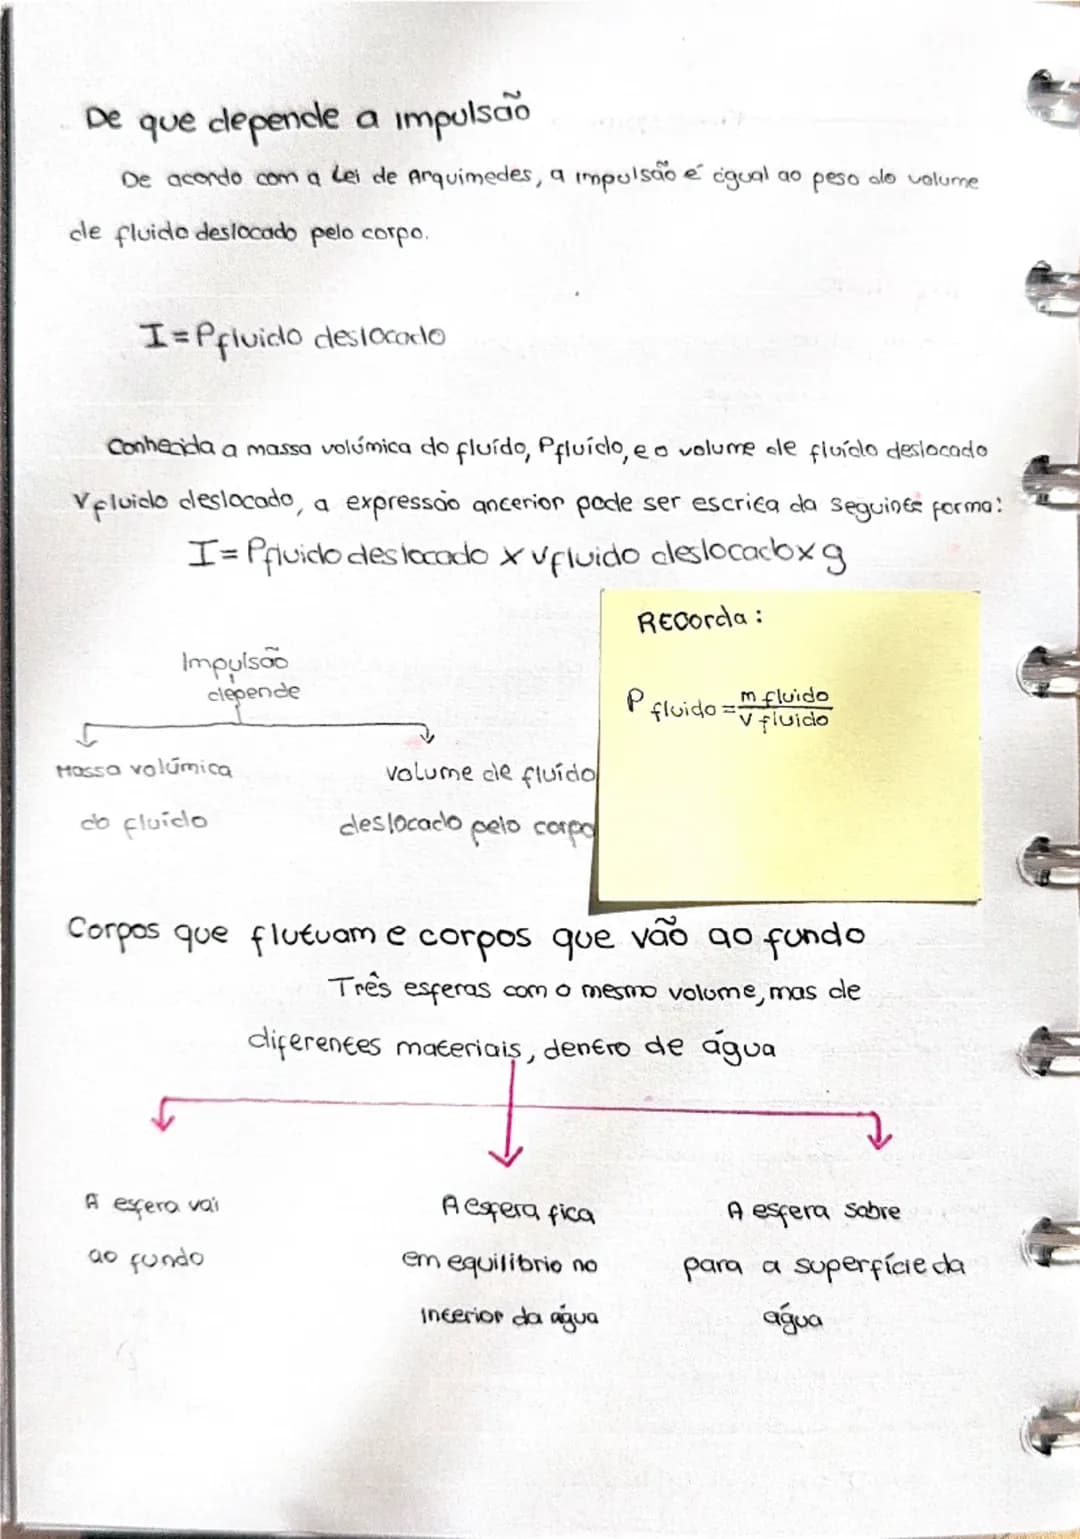 De que depende a impulsão
De acordo com a Lei de Arquimedes, a impulsão é igual ao peso do volume
de fluido deslocado pelo corpo.
I = Pfluido deslocado
Conhecida a massa volúmica do fluído, Pfluído, e o volume de fluído deslocado
Vfluido deslocado, a expressão anterior pode ser escrita da seguinte forma:
I = Pfluido deslocado x vfluido deslocado x g
RECorda:
P fluido = m fluido
v fluido
Impulsão
depende
Massa volúmica
do fluído
volume de fluído
deslocado pelo corpo
Corpos que flutuam e corpos que vão ao fundo
Três esferas com o mesmo volume, mas de
diferentes materiais, dentro de água
A esfera vai
ao fundo
A esfera fica
em equilibrio no
interior da água
A esfera sobre
para a superfície da
água